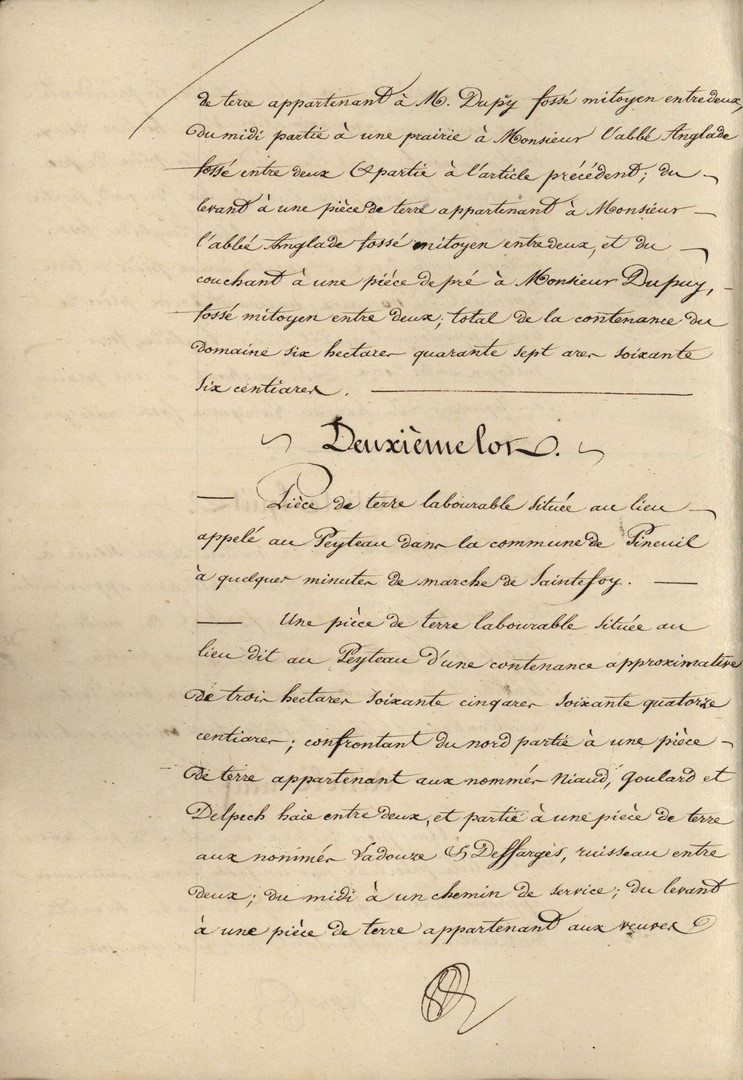 de terre appartenant à M. Dupuy fossé mitoyen entre deux,
du midi partie à une prairie à Monsieur l'abbé Anglade
fossé entre deux & partie à l'article précédent; du
levant à une pièce de terre appartenant à Monsieur
l'abbé Anglade fossé mitoyen entre deux, et du
couchant à une pièce de pré à Monsieur Dupuy,
fossé mitoyen entre deux; total de la contenance du
Domaine six hectares quarante sept ares soixante
six centiares.
Deuxième lot.
— Pièce de terre labourable située au lieu
appelé au Peyteau dans la commune de Pineuil
à quelques minutes de marche de Saintefoy. —
— Une pièce de terre labourable située au
lieu dit au Peyteau d'une contenance approximative
de trois hectares soixante cinq ares soixante quatorze
centiares; confrontant du nord partie à une pièce
de terre appartenant aux nommés Niaud, Goulard et
Delpech haie entre deux, et partie à une pièce de terre
aux nommés Ladouze & Deffarges, ruisseau entre
deux; du midi à un chemin de service; du levant
à une pièce de terre appartenant aux veuves